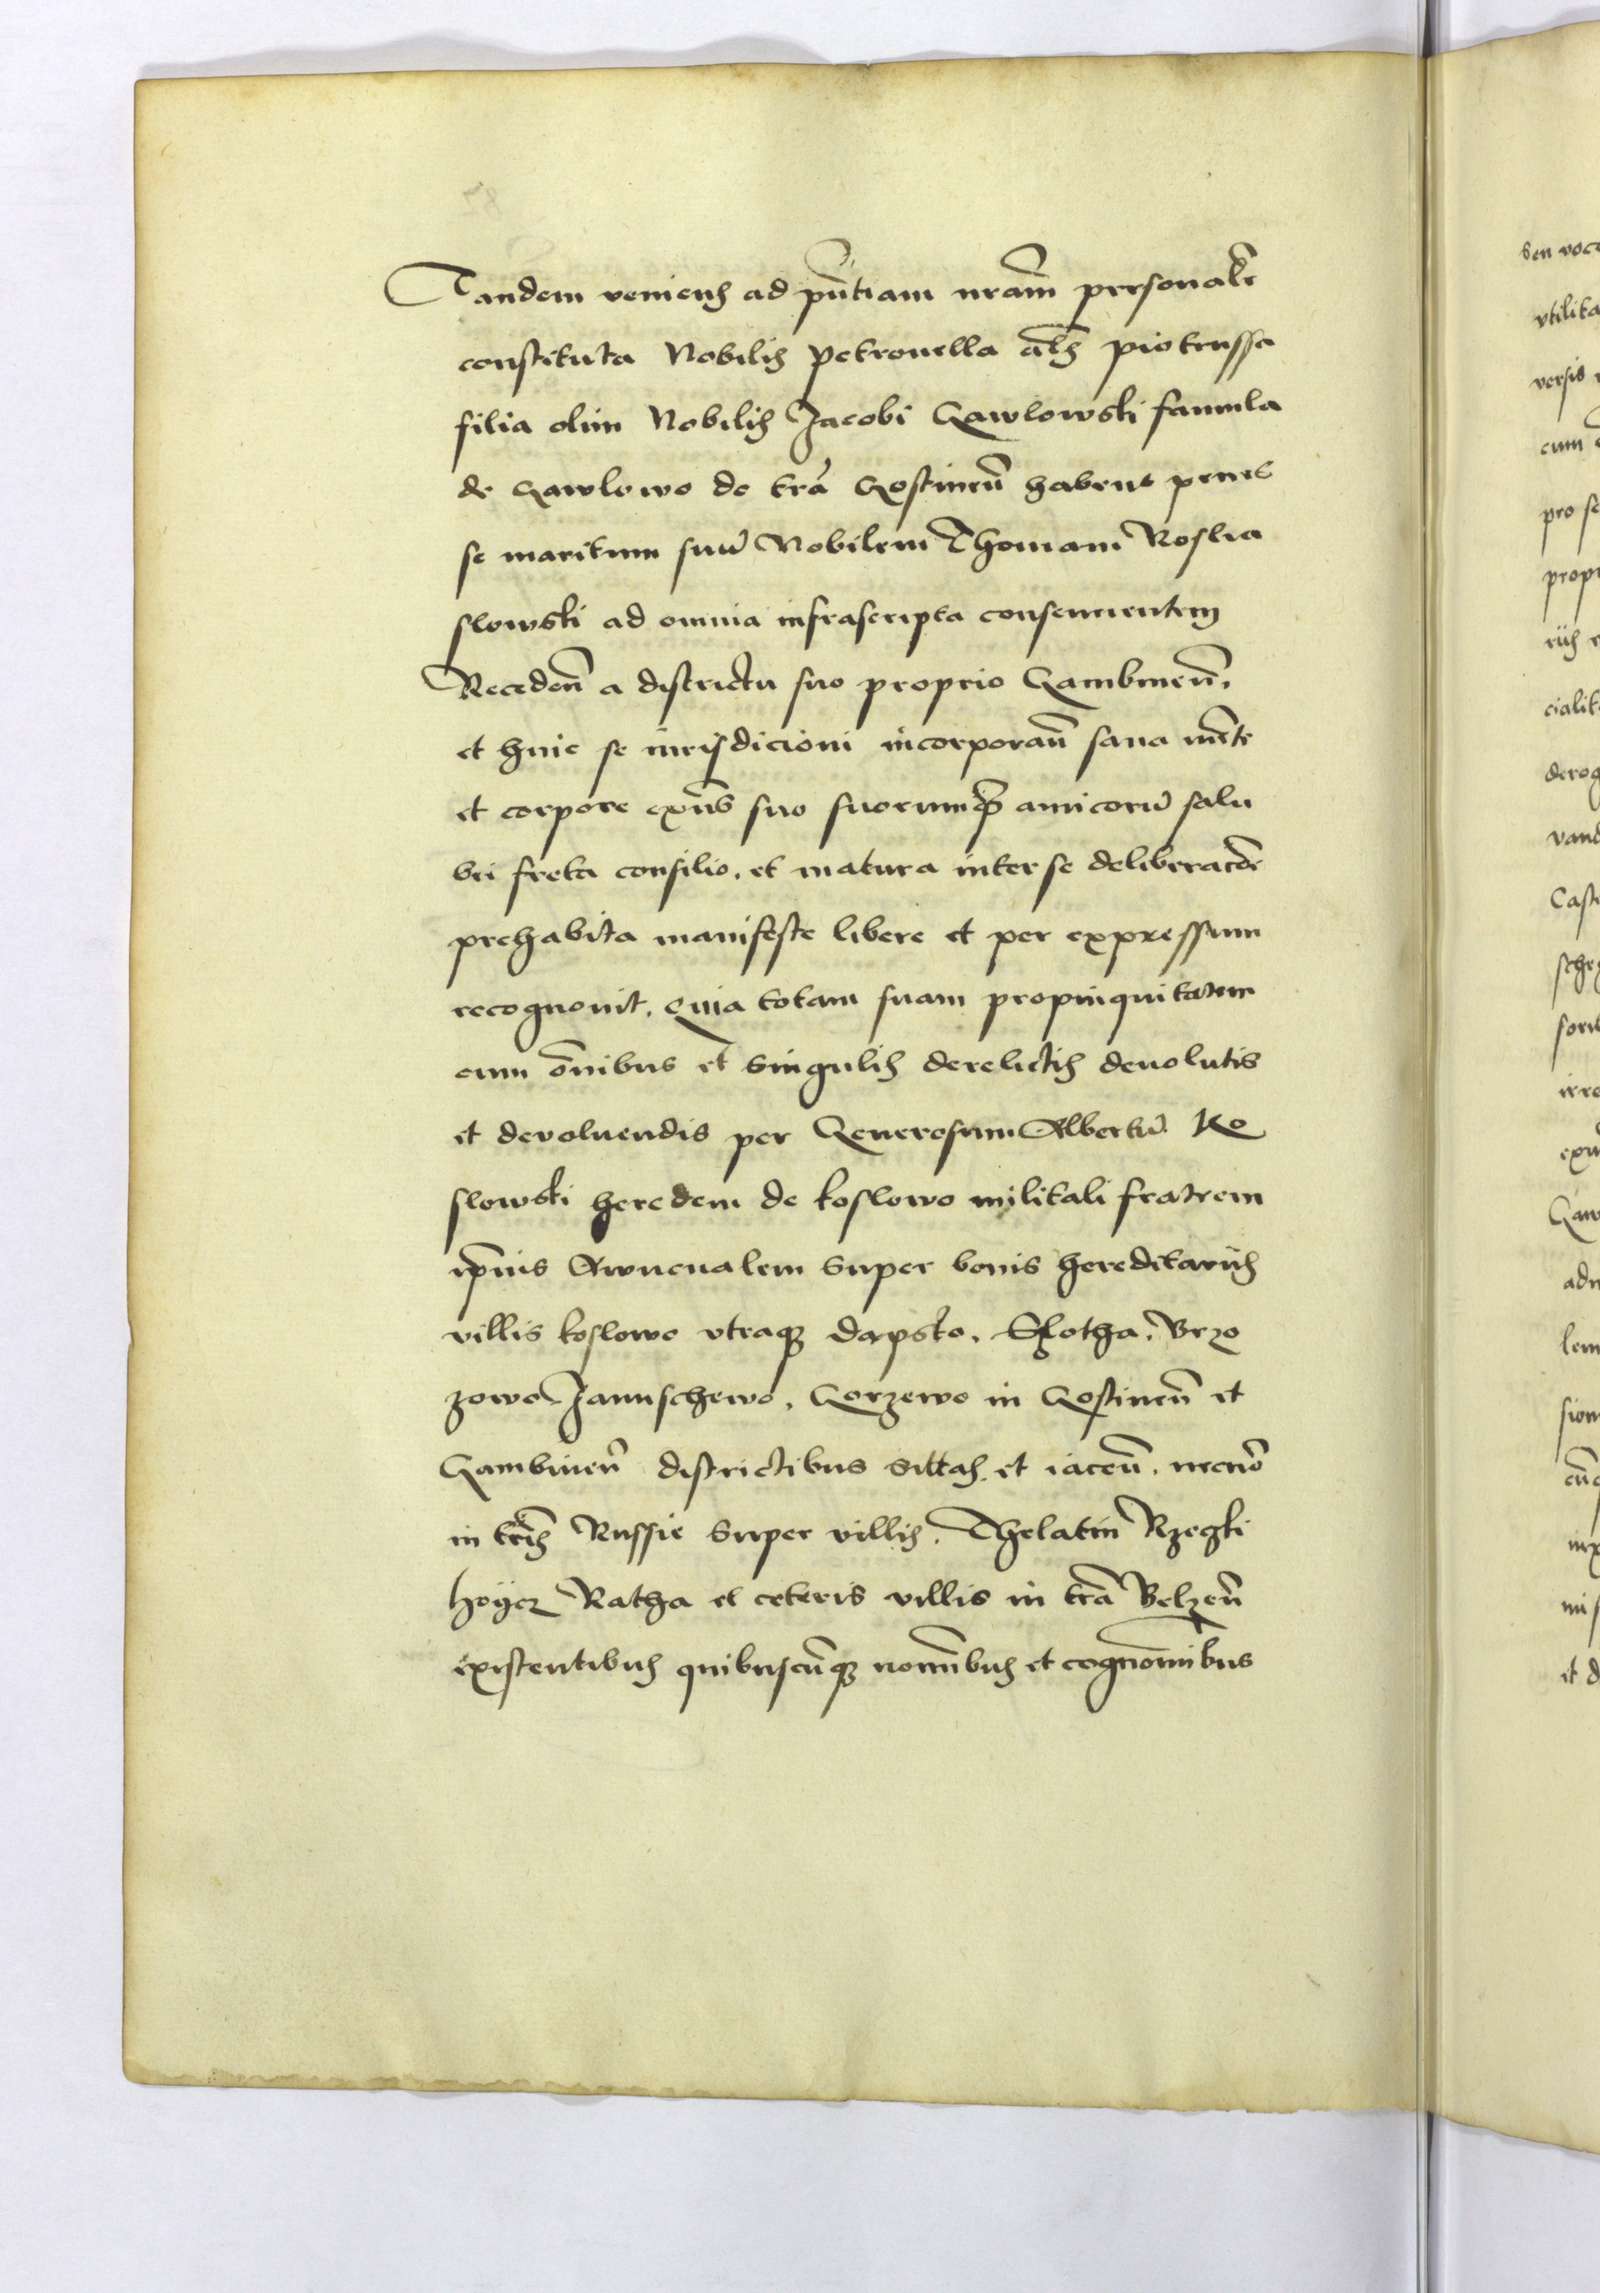 Tandem veniens ad pñtiam nram̃ personalr̃
constituta Nobilis Petronella al̃s Piotrussa
filia olim Nobilis Jacobi Gawlowski famula
de Gawlowo de trã Gostineñ habens penes
se maritum suũ Nobilem Thomam Roslea
slowski ad omnia infrascripta consencientem
Recedeñ a districtu suo proprio Gambineñ.
et huic se iurisdicioni incorporañ sana mẽte
et corpore exñs suo suorumqȝ amicorũ salu
bri freta consilio. et matura inter se deliberacõe
prehabita manifeste libere et per expressum
recognovit. Quia totam suam propinquitatem
cum õnibus et singulis derelictis devolutis
et devoluendis per Generosum Albertũ Ko
slowski heredem de koslowo militali fratrem
ip̃ius Awunculem super bonis hereditariis
villis koslowo utraqȝ Dapsko. Slotha. Brzo
zowo Januschewo. Gorzewo in Gostineñ et
Gambineñ districtibus sittas et iaceñ. necnõ
in tr̃is Russie super villis. Thelatin Rzegki
hoÿcz Ratha et ceteris villis in trã Belzeñ
existentibus quibuscũqȝ nominĩbus et cognomĩnibus
Sen voc
utilita
versis
cum
pro se
propr
riis
cialit
derog
vand
Cast
sche
irre
Gaw
lem
sion
et d